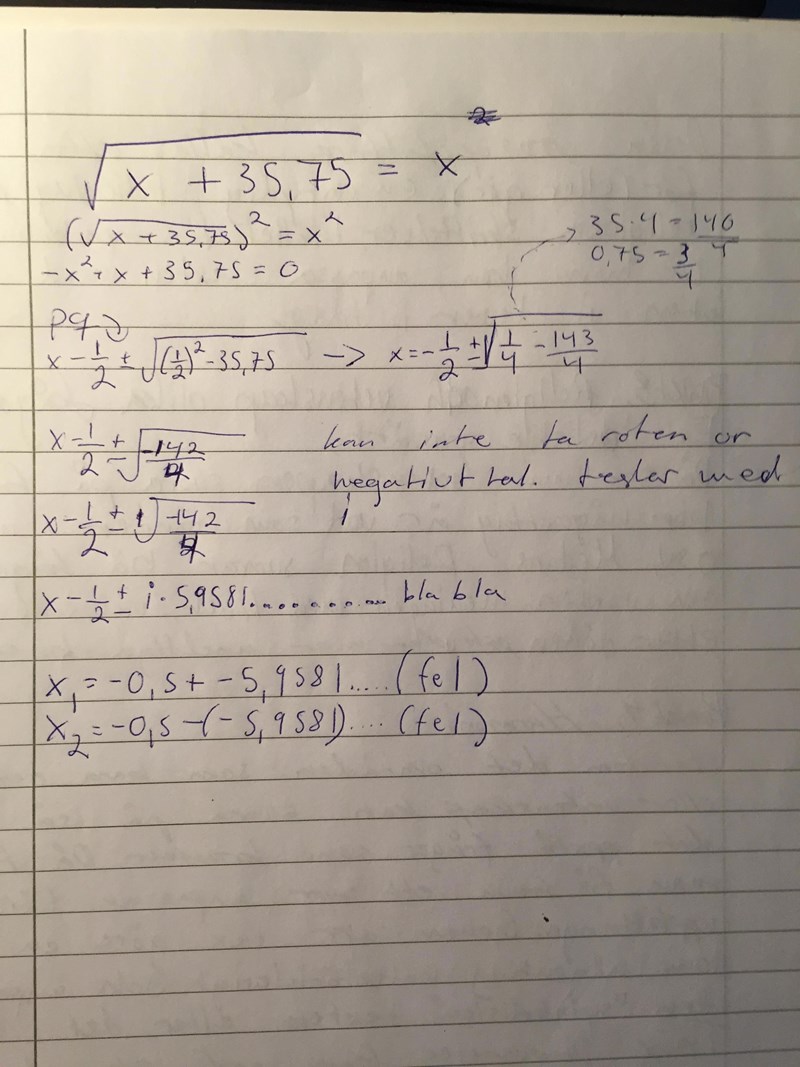 √(x + 35,75) = x
(√(x + 35,75))² = x²
35·4 = 140/4
0,75 = 3/4
-x² + x + 35,75 = 0
pq
x - 1/2 ± √((1/2)² - 35,75) -> x = -1/2 ± √(1/4 - 143/4)
x - 1/2 ± √(-142/4) kan inte ta roten ur
negativt tal. testar med
i
x - 1/2 ± i√(-142/4)
x - 1/2 ± i · 5,9581............ bla bla
x₁ = -0,5 + -5,9581..... (fel)
x₂ = -0,5 - (-5,9581).... (fel)